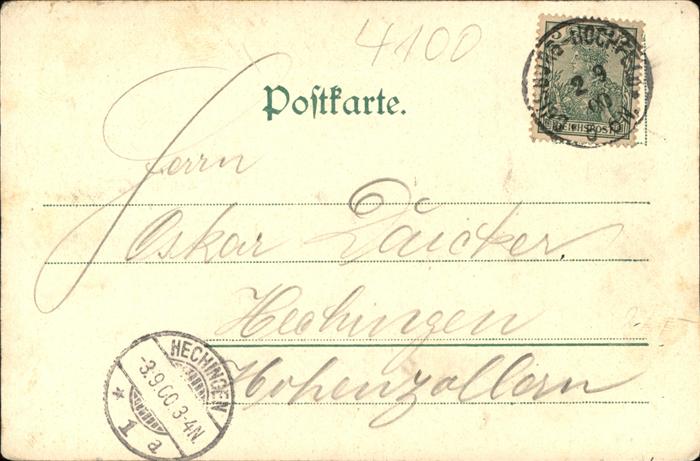 4100
Postkarte.
2 9
00
REICHSPOST
Herrn
Oskar Daicker
Hechingen
Hohenzollern
HECHINGEN
-3.9.00.3-4N
* 1 a